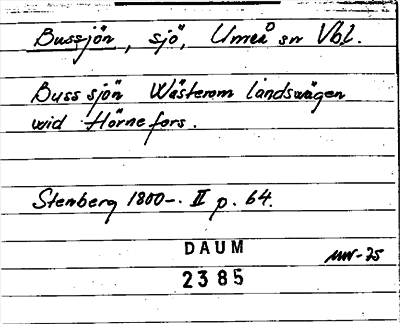 Bussjön, sjö, Umeå sn Vbl.
Buss sjön Wästerom landswägen
wid Hörnefors.
Stenberg 1800-. II p. 64.
DAUM
2385
MW-75